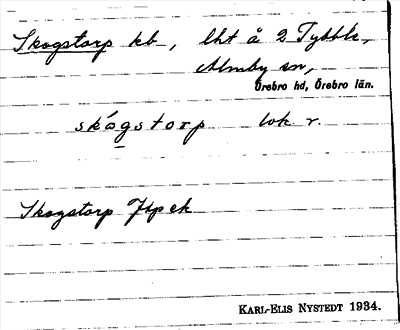 Skogstorp kb, lht å 2 Tybble,
Almby sn,
Örebro hd, Örebro län.
skógstorp lok r.
Skogstorp Jlp ek
KARL-ELIS NYSTEDT 1934.